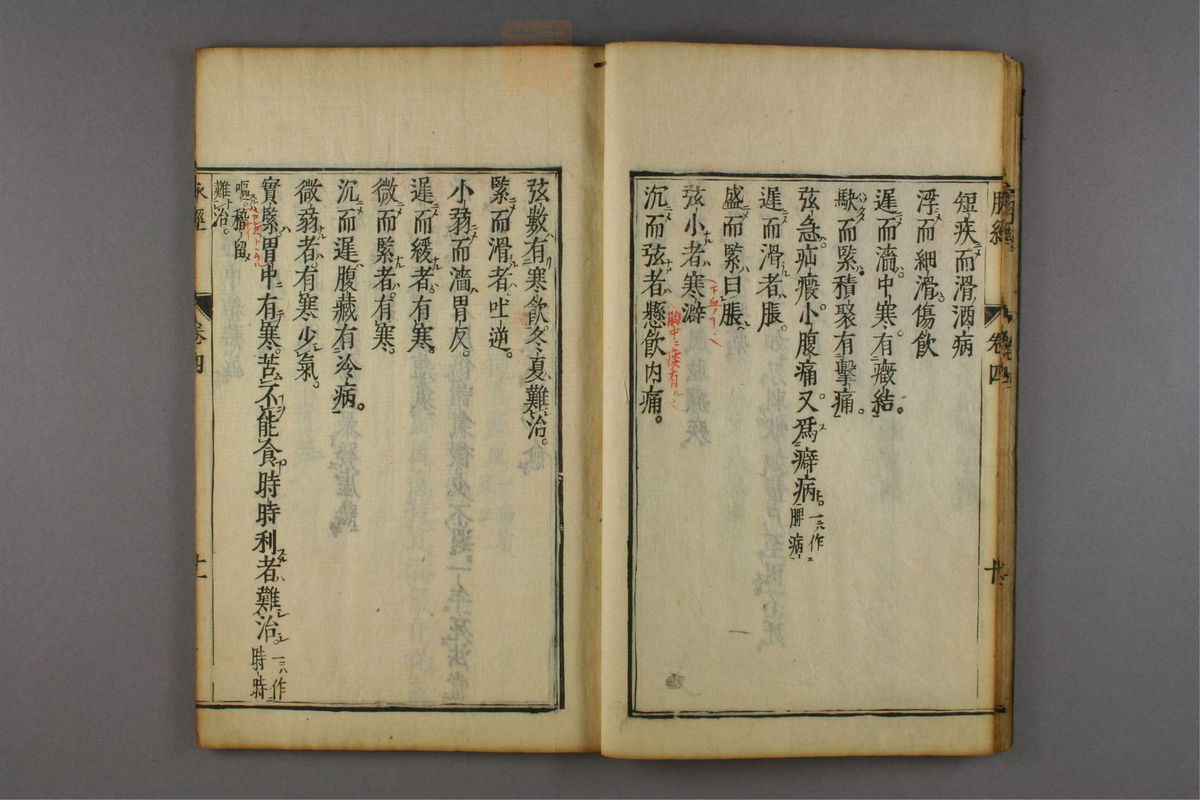 脉經
卷四
短疾而滑酒病
浮而細滑傷飲
遲而濇中寒有癥結
駃而緊積聚有擊痛
弦急疝瘕小腹痛又爲癖病一作脾病
遲而滑者脹
盛而緊曰脹
弦小者寒澼
沉而弦者懸飲内痛
弦數有寒飲冬夏難治
緊而滑者吐逆
小弱而濇胃反
遲而緩者有寒
微而緊者有寒
沉而遲腹藏有冷病
微弱者有寒少氣
實緊胃中有寒苦不能食時時利者難治一作時時
嘔稽留難治
脉經
卷四
十一